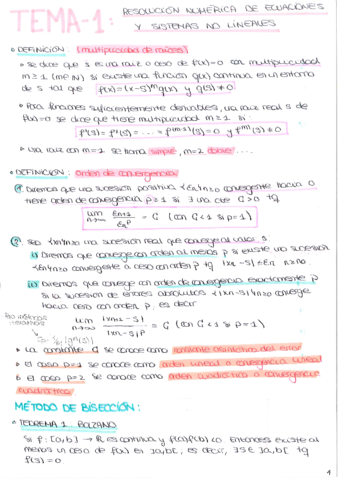 TEMA-1: RESOLUCIÓN NUMÉRICA DE ECUACIONES
Y SISTEMAS NO LINEALES
• DEFINICIÓN (multiplicidad de raíces)
• Se dice que s es una raíz o cero de f(x)=0 con multiplicidad
m≥1 (m∈ℕ) si existe una función q(x) continua en un entorno
de s tal que f(x)=(x-s)^m q(x) y q(s)≠0
• Para funciones suficientemente derivables, una raíz real s de
f(x)=0 se dice que tiene multiplicidad m≥1 si:
f(s)=f'(s)=...=f^(m-1)(s)=0 y f^m(s)≠0
• Una raíz con m=1 se llama simple, m=2 doble...
• DEFINICIÓN: Orden de convergencia
① Diremos que una sucesión positiva {εn}n≥0 convergente hacia 0
tiene orden de convergencia p≥1 si ∃ una cte C>0 tq
lim n→∞ εn+1/εn^p = C (con C<1 si p=1)
② Sea {xn}n≥0 una sucesión real que converge al valor s
i) Diremos que converge con orden al menos p si existe una sucesión
{εn}n≥0 convergente a cero con orden p tq |xn-s|≤εn n≥0
ii) Diremos que converge con orden de convergencia exactamente p
si la sucesión de errores absolutos {|xn-s|}n≥0 converge
hacia cero con orden p, es decir
lim n→∞ |xn+1-s|/|xn-s|^p = C (con C<1 si p=1)
• La constante C se conoce como constante asintótica del error
• El caso p=1 se conoce como orden lineal o convergencia lineal
• El caso p=2 se conoce como orden cuadrático o convergencia
cuadrática
MÉTODO DE BISECCIÓN:
• TEOREMA 1. BOLZANO
• Si f:[a,b] → ℝ es continua y f(a)f(b)<0 entonces existe al
menos un cero de f(x) en ]a,b[, es decir, ∃s∈]a,b[ tq
f(s)=0
1